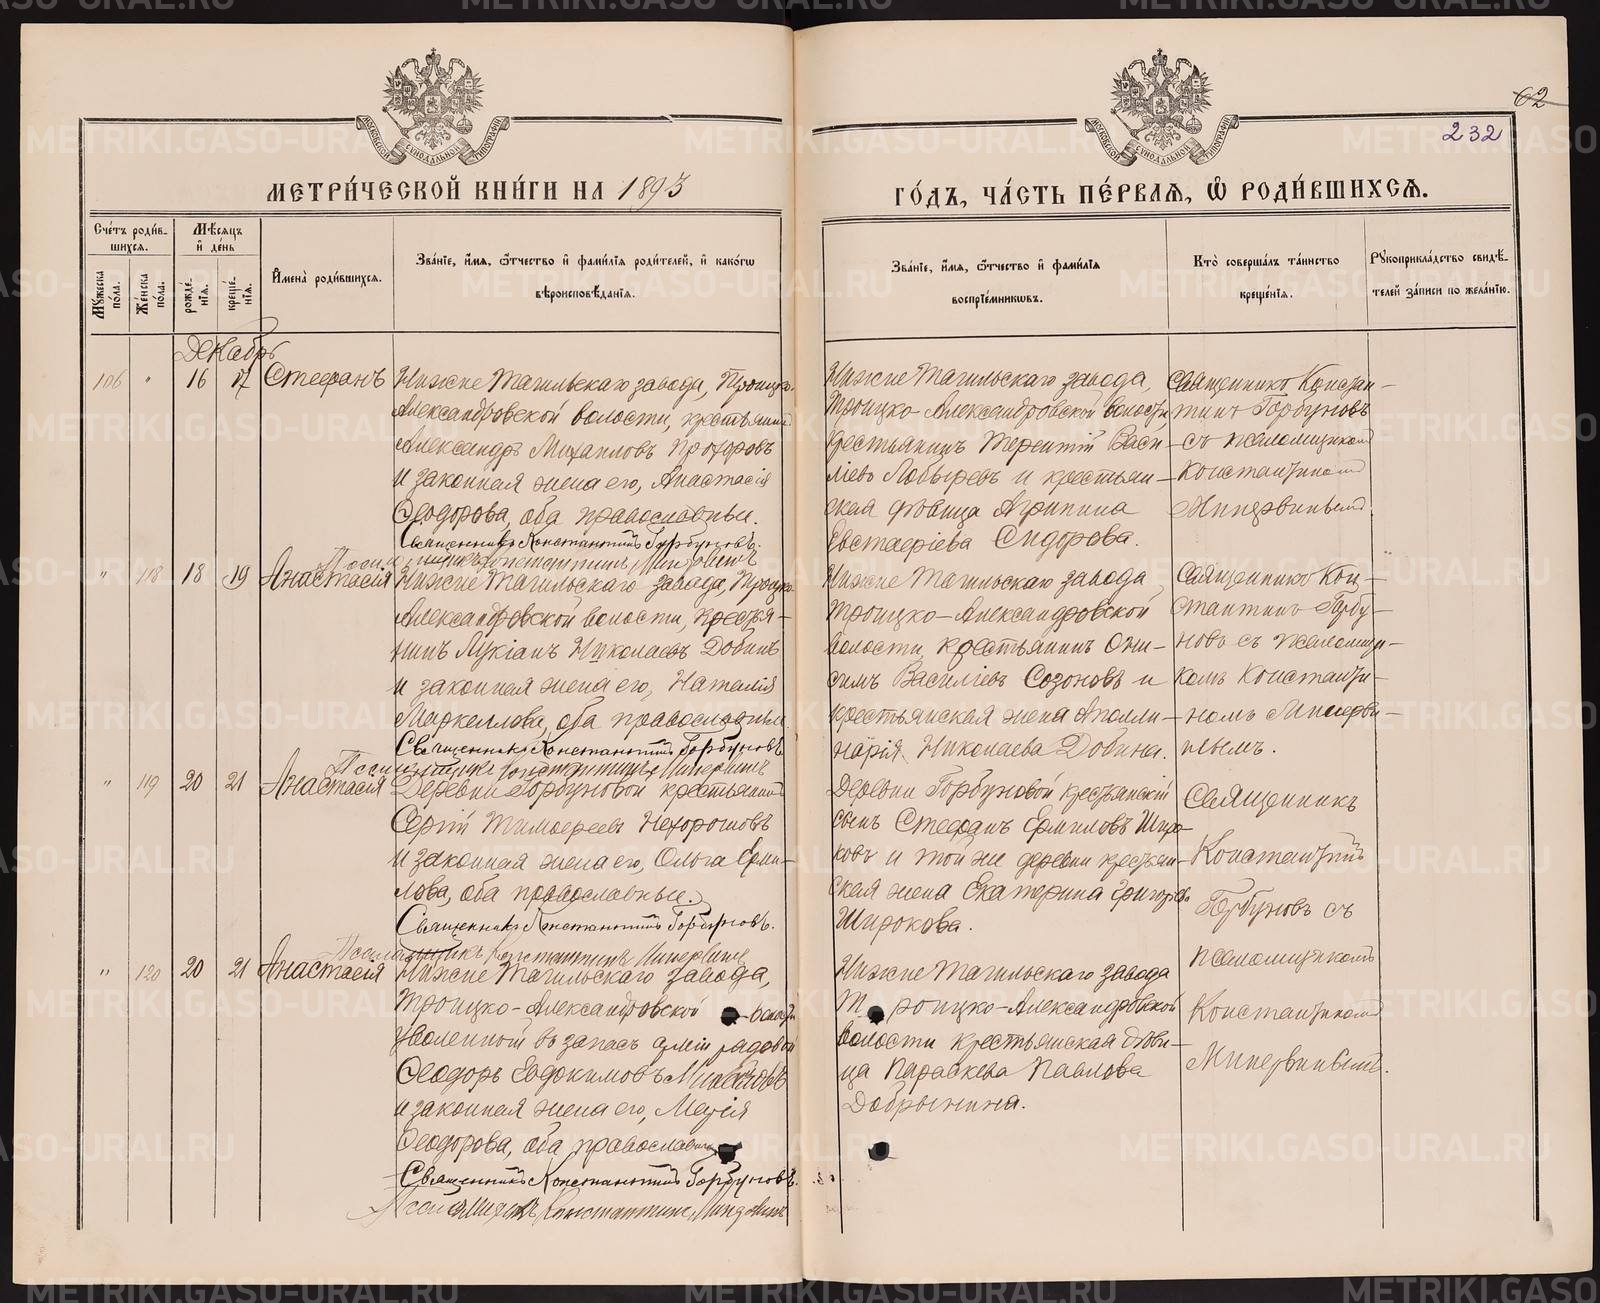 62
232
МОСКОВСКОЙ СѴНОДАЛЬНОЙ ТИПОГРАФІИ
МОСКОВСКОЙ СѴНОДАЛЬНОЙ ТИПОГРАФІИ
МЕТРИ́ЧЕСКОЙ КНИ́ГИ НА 1893
ГО́ДЪ, ЧА́СТЬ ПЕ́РВАЯ, Ѡ РОДИ́ВШИХСЯ.
Сче́тъ роди́в-
шихся.
Мѣ́сяцъ
и де́нь
Му́жеска
пола.
Же́нска
пола.
рожде́-
нія.
креще́-
нія.
Имена̀ роди́вшихся.
Зва́ніе, и́мя, ѻ́тчество и фами́лія роди́телей, и како́гѡ
вѣроисповѣ́данія.
Зва́ніе, и́мя, ѻ́тчество и фами́лія
воспріе́мникѡвъ.
Кто̀ соверша́лъ та́инство
креще́нія.
Рукоприкла́дство свидѣ́-
телей за́писи по жела́нію.
Декабрь
106 " 16 17 Стефанъ
Нижне Тагильскаго завода, Троицко-
Александровской волости, крестьянинъ
Александръ Михаиловъ Прохоровъ
и законная жена его, Анастасія
Ѳеодорова, оба православные.
Священникъ Константинъ Горбуновъ.
Псаломщикъ Константинъ Минервинъ
Нижне Тагильскаго завода,
Троицко-Александровской волости,
крестьянинъ Терентій Васи-
ліевъ Лобыревъ и крестьян-
ская дѣвица Агрипина
Евстафіева Сидорова.
Священникъ Констан-
тинъ Горбуновъ
съ псаломщикомъ
Константиномъ
Минервинымъ.
" 118 18 19 Анастасія
Нижне Тагильскаго завода, Троицко-
Александровской волости, крестья-
нинъ Лукіанъ Николаевъ Добинъ
и законная жена его, Наталія
Маркеллова, оба православные
Священникъ Константинъ Горбуновъ
Псаломщикъ Константинъ Минервинъ
Нижне Тагильскаго завода
Троицко-Александровской
волости крестьянинъ Они-
симъ Василіевъ Созоновъ и
крестьянская жена Аполли-
нарія Николаева Добина.
Священникъ Кон-
стантинъ Горбу-
новъ съ псаломщи-
комъ Константи-
номъ Минерви-
нымъ.
" 119 20 21 Анастасія
Деревни Горбуновой крестьянинъ
Сергій Тимофеевъ Нехорошовъ
и законная жена его, Ольга Ерми-
лова, оба православные.
Священникъ Константинъ Горбуновъ.
Псаломщикъ Константинъ Минервинъ
Деревни Горбуновой крестьянскій
сынъ Стефанъ Ермиловъ Широ-
ковъ и той же деревни крестьян-
ская жена Екатерина Григорьева
Широкова.
Священникъ
Константинъ
Горбуновъ съ
псаломщикомъ
Константиномъ
Минервинымъ.
" 120 20 21 Анастасія
Нижне Тагильскаго завода,
Троицко-Александровской волости
уволенный въ запасъ арміи рядовой
Ѳеодоръ Евдокимовъ
и законная жена его, Марія
Ѳеодорова, оба православные
Священникъ Константинъ Горбуновъ.
Псаломщикъ Константинъ Минервинъ
Нижне Тагильскаго завода
Троицко-Александровской
волости крестьянская дѣви-
ца Параскева Павлова
Добрынина.